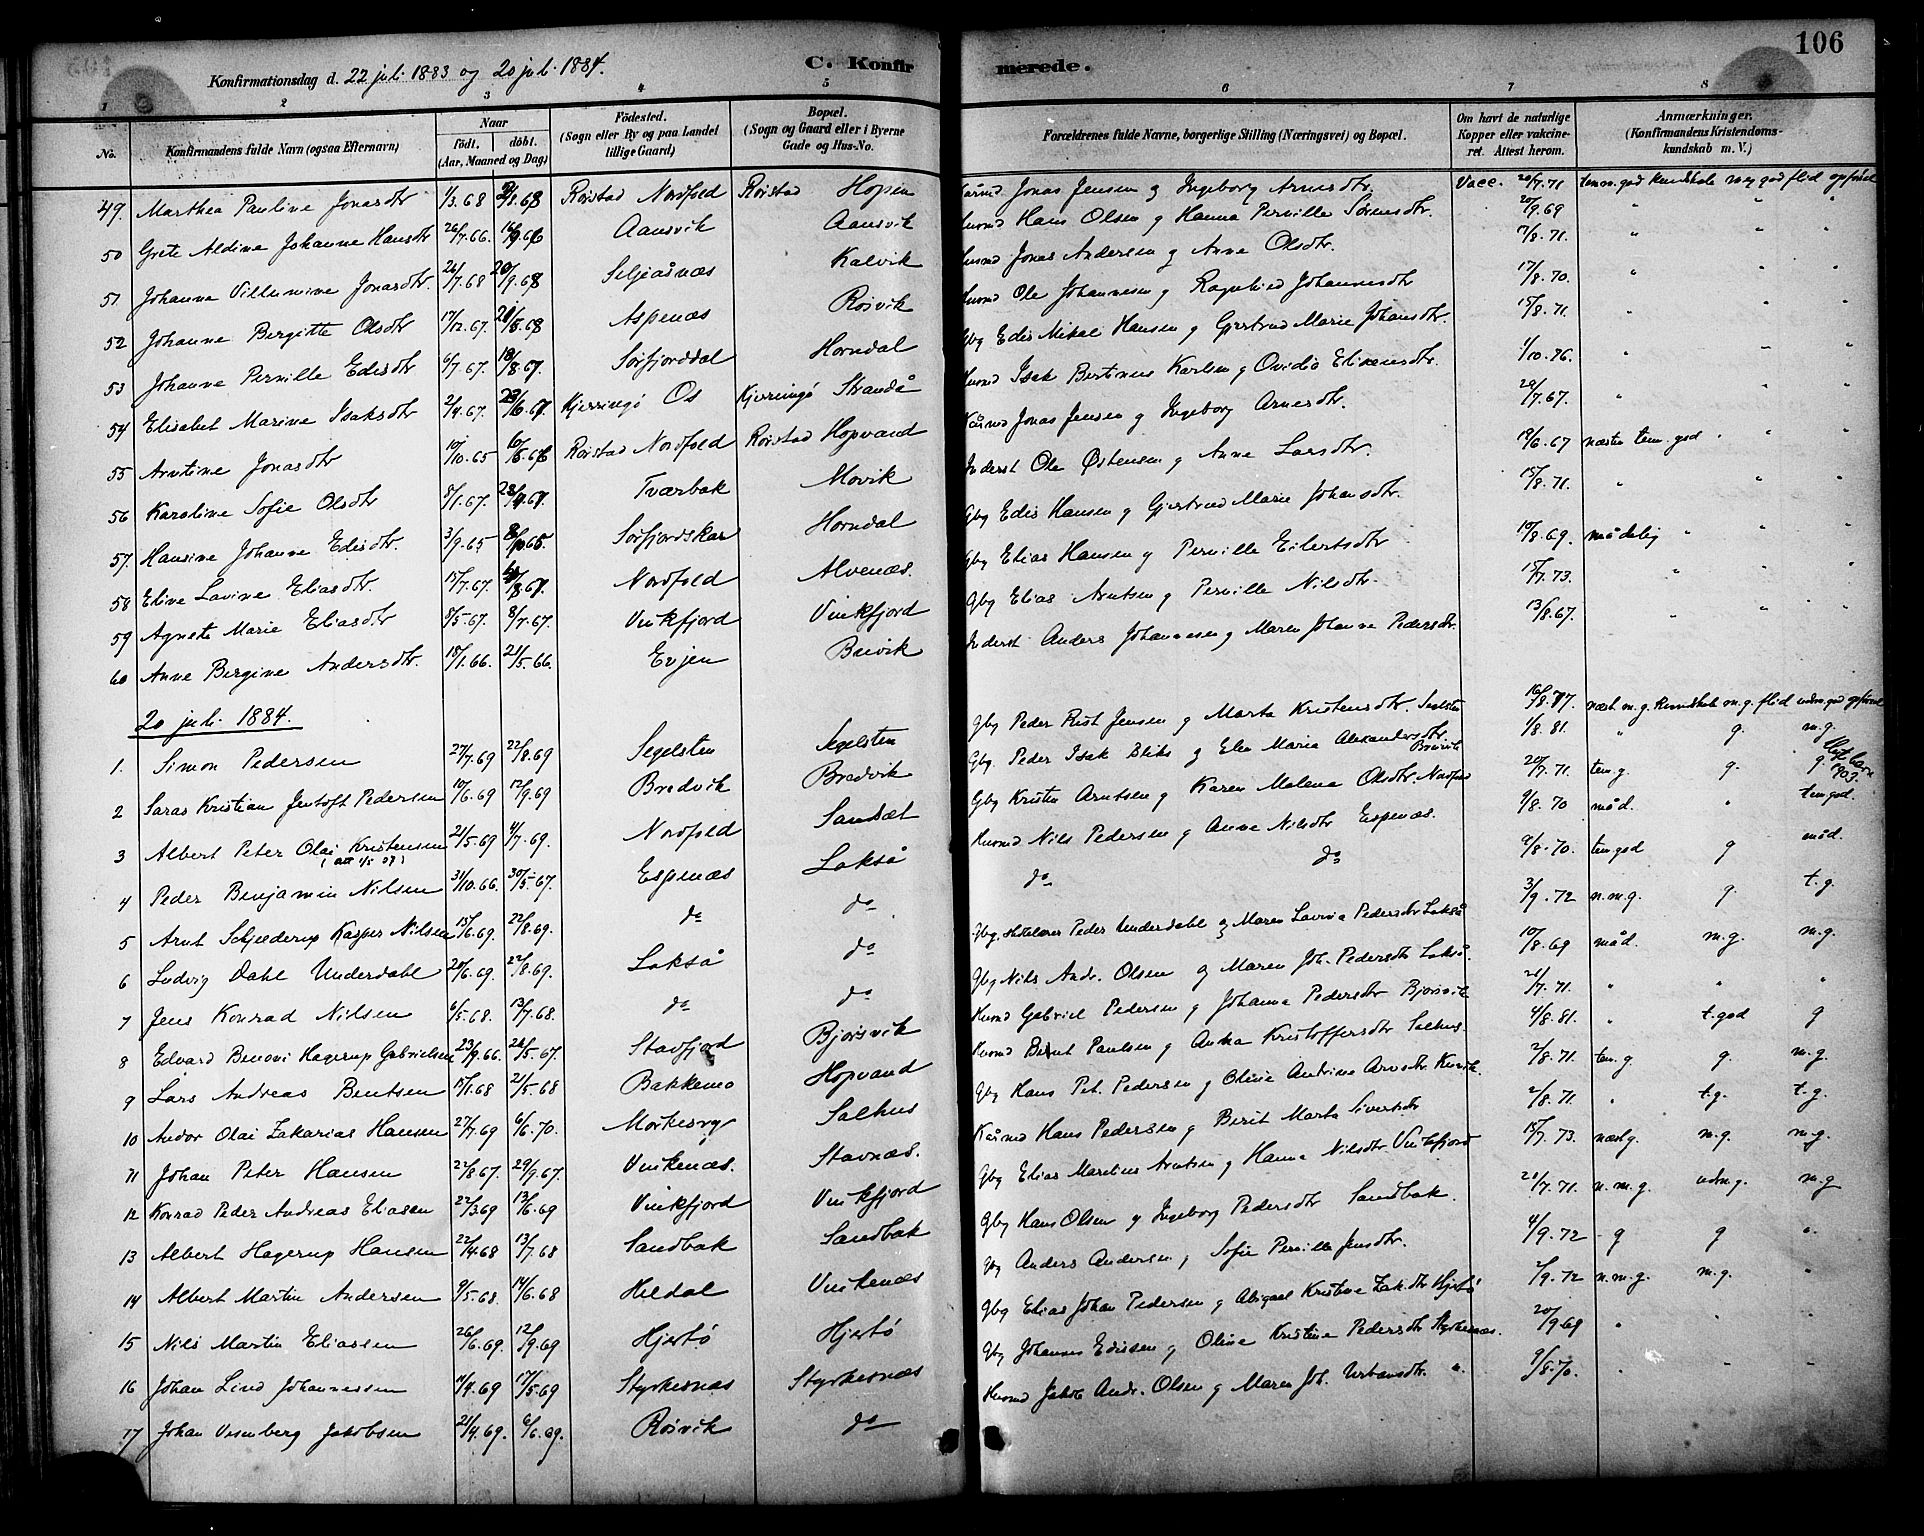 106
Konfirmationsdag d. 22 juli 1883 og 20 juli 1884.
C. Konfirmerede.
1 2 3 4 5 6 7 8
No. Konfirmandens fulde Navn (ogsaa Efternavn) Naar født. døbt. (Aar, Maaned og Dag) Fødested. (Sogn eller By og paa Landet tillige Gaard) Bopæl. (Sogn og Gaard eller i Byerne Gade og Hus-No. Forældrenes fulde Navne, borgerlige Stilling (Næringsvei) og Bopæl. Om havt de naturlige Kopper eller vakcineret. Attest herom. Anmærkninger. (Konfirmandens Kristendomskundskab m. V.)
49. Marthea Pauline Jonasdtr 1/3.68 Røistad Nordfold Røistad Hopen Jonas Jensen og Ingeborg Arnesdtr. Vacc. 20/7.71
50 Grete Aldine Johanne Hansdtr 26/7.66. Aansvik Aansvik Husmd Hans Olsen og Hanna Pernille Sørensdtr. 20/9.69 " " "
51 Johanne Villumine Jonasdtr. 26/7.68 Seljeåsnæs Kalvik Husmd Jonas Andersen og Anne Olsdtr. 17/8.71. " " "
52 Johanne Bergitte Olsdtr 17/12.67. Aspenæs Røivik Husmd Ole Johannesen og Ragnhild Johannesdtr 17/8.70. " " "
53 Johanne Pernille Edisdtr 6/7.67. 18/8.67. Sørfjorddal Horndal Gbg Edis Mikal Hansen og Gjertrud Marie Johansdtr. 15/8.71. " " "
54 Elisabet Marine Isaksdtr 2/4.67. 23/6.67. Kjerringø Os Kjerringø Strandå Husmd Isak Bertinus Karlsen og Ovidia Elixensdtr. 1/10.76. " " "
55 Arntine Jonasdtr 10/10.65 Røistad Nordfold Røistad Hopvand Kårmd Jonas Jensen og Ingeborg Arnesdtr. 28/7.67. " " "
56 Karoline Sofie Olsdtr 5/1.67. Tværbak Movik Inderst Ole Østensen og Anne Larsdtr. 19/6.67 næsten tem. god " " "
57. Hansine Johanne Edisdtr. 3/9.65 Sørfjordskar Horndal Gbg Edis Hansen og Gjertrud Marie Johansdtr. 15/8.71. " " "
58 Eline Lavine Eliasdtr. 15/7.67. Nordfold Alvenæs. Gbg Elias Hansen og Pernille Eilertsdtr 19/8.69. mådelig " " "
59 Agnete Marie Eliasdtr 8/5.67. 8/7.67. Vinkfjord Vinkfjord Gbg Elias Arntsen og Pernille Nilsdtr. 15/7.73. " " "
60 Anne Bergine Andersdtr. 18/1.66. 21/5.66. Evjen Brevik Inderst Anders Johannesen og Maren Johanne Pedersdtr. 13/8.67. " " "
20 juli. 1884.
1. Simon Pedersen 27/7.69 22/8.69 Segelsten Segelsten Gbg Peder Rist Jensen og Marta Kristensdtr. næst m.g. Kundskab m.g. flid
2 Saras Kristian Jentoft Pedersen 10/6.69 12/9.69 Bredvik Bredvik Gbg. Peder Isak Bliks og Elen Maria Alexandersdtr 1/8.81. " g. m.g.
3 Albert Peter Olai Kristensen 21/5.69 4/7.69. Nordfold Sandsæt Gbg Kristen Arntsen og Karen Malena Olsdtr. Nordfold 20/7.71. tem.g. g. g
4 Peder Benjamin Nilsen 31/10.66. 30/5.67. Espenæs Lakså Husmd Nils Pedersen og Anne Nilsdtr Espenæs. 9/8.70 måd. " tem.god.
5 Arnt Schjelderup Kasper Nilsen 15/6.69. 22/8.69. do do do do 9/8.70. tem.god g måd.
6 Ludvig Dahl Underdahl 20/6.69. 22/8.69. Lakså do Gbg. Peder Underdahl og Maren Lavina Pedersdtr Lakså 3/9.72 n.m.g. g. t.g.
7 Jens Konrad Nilsen 6/5.68. 13/7.68. do do Gbg Nils Andr. Olsen og Maren Joh. Pedersdtr Lakså. 10/8.69 måd. m.g. m.g.
8 Edvard Benoni Hagerup Gabrielsen 23/9.66. 26/5.67. Stavfjord Bjørsvik Husmd Gabriel Pedersen og Johanna Pedersdtr Bjørsvik 21/7.71. " " "
9 Lars Andreas Bentsen 15/1.68 21/5.68 Bakkemo Hopvand Husmd Bernt Paulsen og Anna Kristoffersdtr Salhus. 4/8.81. " t.god g
10 Andor Olai Zakarias Hansen 27/7.69 6/6.70. Mørkesvig Salhus Gbg Hans Pet. Pedersen og Oline Andrine 2/8.71. tem.g. g. m.g.
11 Johan Peter Hansen 22/8.67. 29/9.67. Vinkenæs. Stavnæs. Kårmd Hans Pedersen og Berit Marta Sivertsdtr 2/8.71. " t.g. t.g.
12 Konrad Peder Andreas Eliasen 22/3.69 13/6.69 Vinkfjord Vinkfjord Gbg Elias Martinus Arntsen og Hanna Nilsdtr Vinkfjord 15/7.73. næstg. m.g. m.g.
13 Albert Hagerup Hansen 22/4.68 13/7.68 Sandbak Sandbak Gbg Hans Olsen og Ingeborg Pedersdtr Sandbak. 21/7.71. n.m.g. udm.g. m.g
14 Albert Martin Andersen 9/5.68. 14/6.68 Heldal Vinkenæs Gbg Anders Andersen og Sofie Pernille Jensdtr. 4/9.72 g g "
15 Nils Martin Eliassen 26/6.69. 12/9.69 Hjertø Hjertø Gbg Elias Johan Pedersen og Abigael Kristine Zak.dtr Hjertø 2/9.72 n.m.g. m.g. "
16 Johan Lind Johannessen 11/4.69 17/5.69 Styrkesnæs Styrkesnæs Gbg Johannes Edissen og Oline Kristine Pedersdtr Styrkesnæs. 20/9.69 " " "
17 Johan Vesenberg Jakobsen 21/4.69. 6/6.69. Røsvik do Husmd Jakob Andr. Olsen og Maren Joh. Urbansdtr. " 9/8.70. " " "